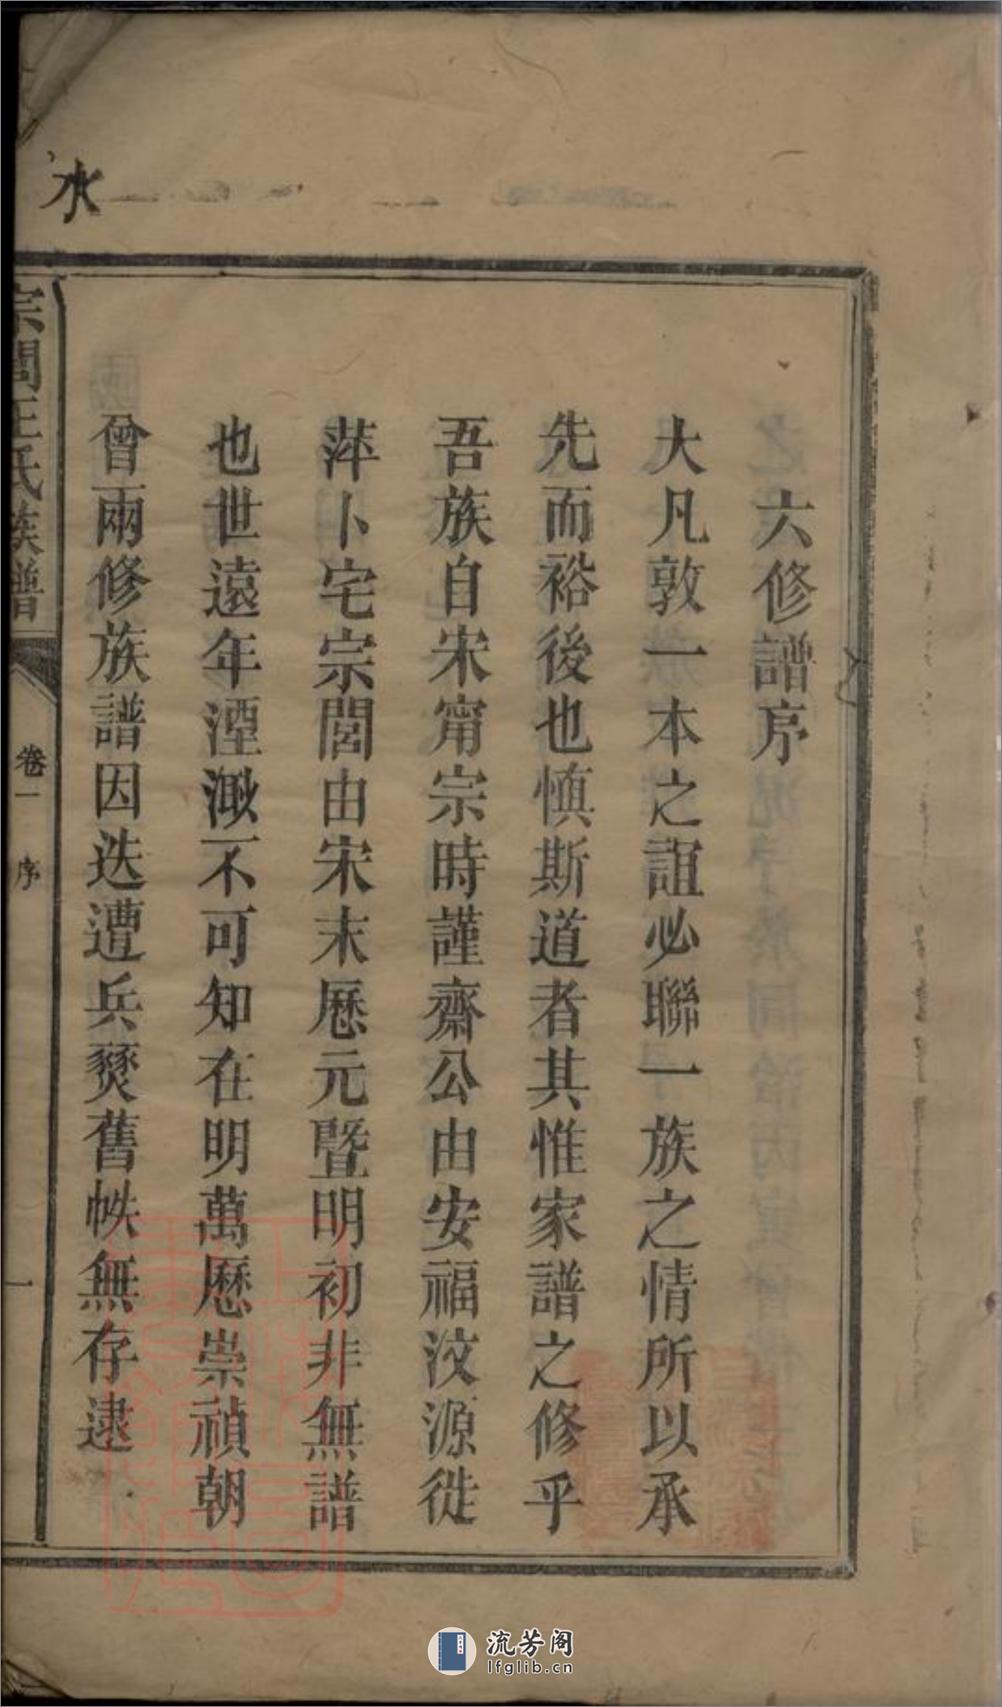 水
六修譜序
大凡敦一本之誼必聯一族之情所以承
先而裕後也慎斯道者其惟家譜之修乎
吾族自宋甯宗時謹齋公由安福汶源徙
萍卜宅宗閭由宋末厯元暨明初非無譜
也世遠年湮渺不可知在明萬厯崇禎朝
曾兩修族譜因迭遭兵燹舊帙無存逮
宗閭王氏族譜
卷一 序
一
流芳阁
lfglib.cn